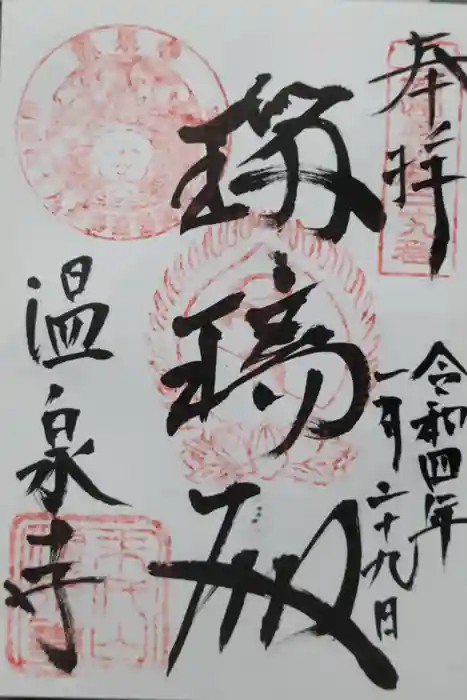 奉拝
令和四年
一月二十九日
瑠璃殿
温泉寺